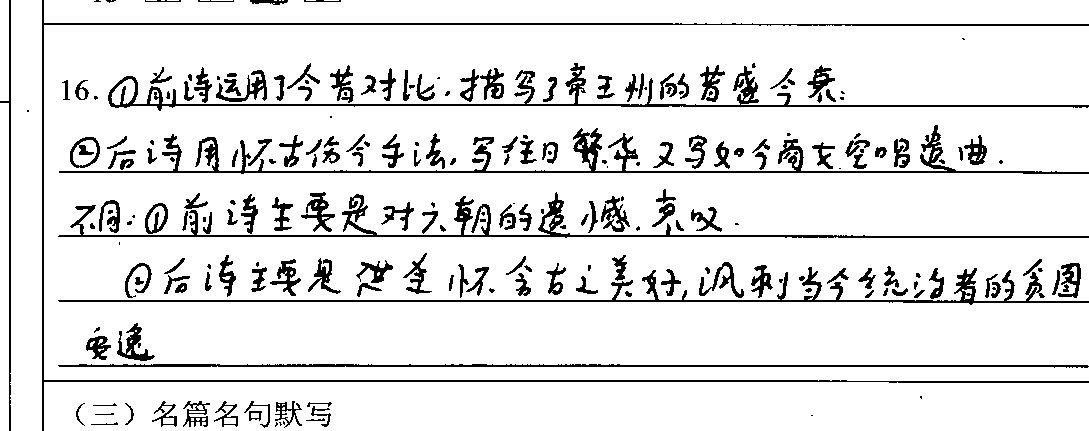 16. ①前诗运用了今昔对比,描写了帝王州的昔盛今衰;
②后诗用怀古伤今手法,写往日繁华又写如今商女空唱遗曲.
不同:①前诗主要是对六朝的遗憾.哀叹.
②后诗主要是 怀念古之美好,讽刺当今统治者的贪图
安逸
(三)名篇名句默写